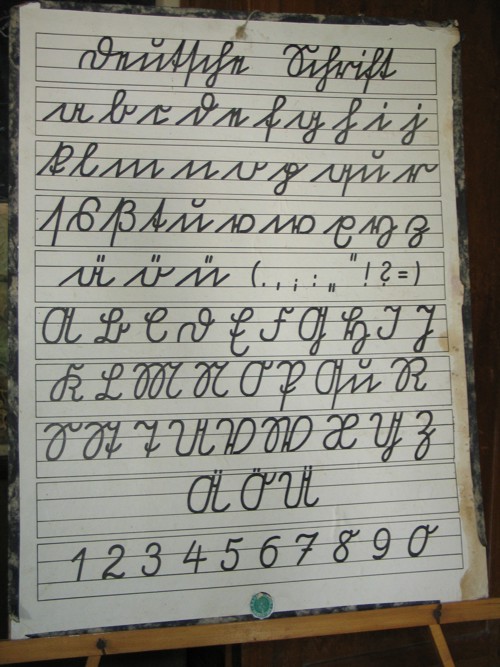 Deutsche Schrift
a b c d e f g h i j
k l m n o p qu r
ſ s ß t u v w x y z
ä ö ü (. , ; : „ “ ! ? = )
A B C D E F G H I J
K L M N O P Qu R
S St T U V W X Y Z
Ä Ö Ü
1 2 3 4 5 6 7 8 9 0